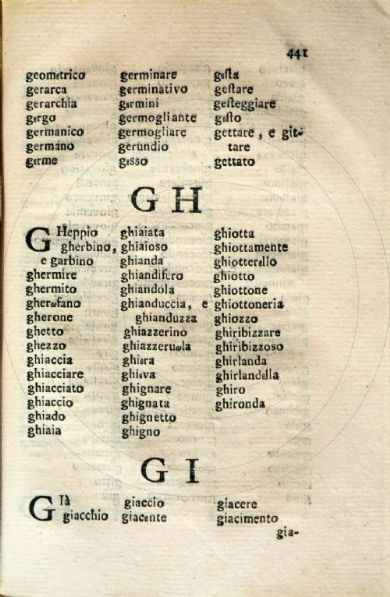 441
geometrico
gerarca
gerarchia
gergo
germanico
germáno
germe
germinare
germinativo
germini
germogliante
germogliare
gerundio
gesso
gesta
gestare
gesteggiare
gesto
gettare, e git-
tare
gettato
GH
GHeppio
gherbino,
e garbino
ghermire
ghermito
gherωfano
gherone
ghetto
ghezzo
ghiaccia
ghiacciare
ghiacciato
ghiaccio
ghiado
ghiaia
ghiaiata
ghiaioso
ghianda
ghiandifero
ghiandola
ghianduccia, e
ghianduzza
ghiazzerino
ghiazzeruωla
ghiera
ghieva
ghignare
ghignata
ghignetto
ghigno
ghiotta
ghiottamente
ghiotterello
ghiotto
ghiottone
ghiottoneria
ghiozzo
ghiribizzare
ghiribizzoso
ghirlanda
ghirlandella
ghiro
ghironda
GI
GIà
giacchio
giaccio
giacente
giacere
giacimento
gia-